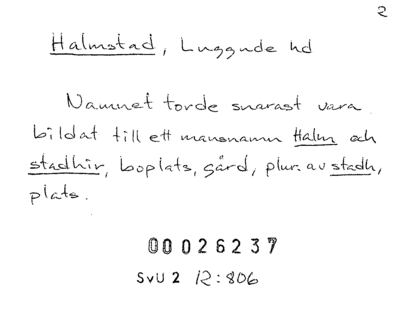 2
Halmstad, Luggude hd
Namnet torde snarast vara
bildat till ett mansnamn Halm och
stadhir, boplats, gård, plur. av stadh,
plats.
00026237
SvU 2 12:806